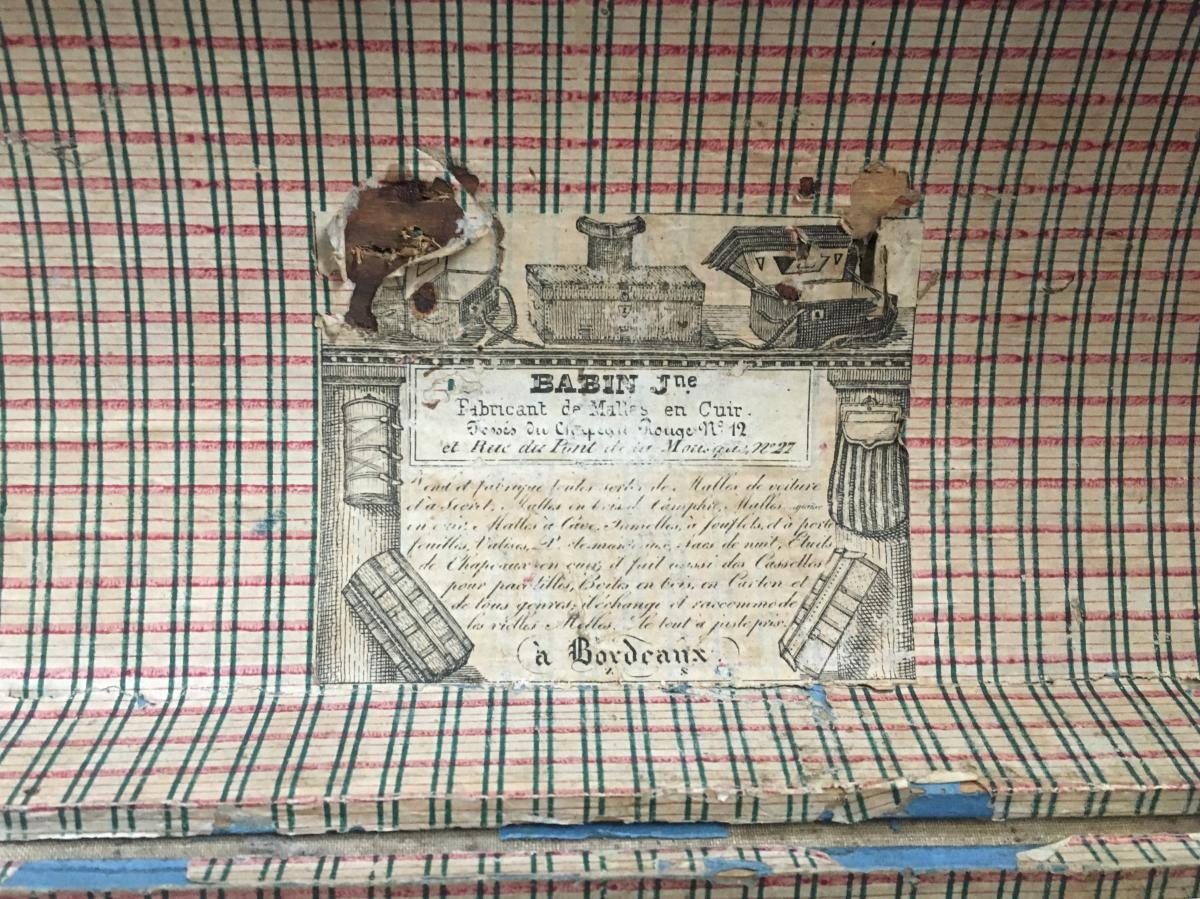 BABIN Jne
Fabricant de Malles en Cuir.
Fossés du Chapeau Rouge No 12
et Rue du Pont de la Mousque, No 27
Vend et fabrique toutes sortes de Malles de voiture
et à Secret, Malles en bois d Camphre, Malles
en cuir, Malles à Cave, Jumelles, à soufflets, et à porte
feuilles, Valises, Sacs de nuit, Etuis
de Chapeaux en cuir, il fait aussi des Cassettes
pour pacotilles, Boites en bois, en Carton et
de tous genres; il échange et raccommode
les vielles Malles, le tout a juste prix.
à Bordeaux